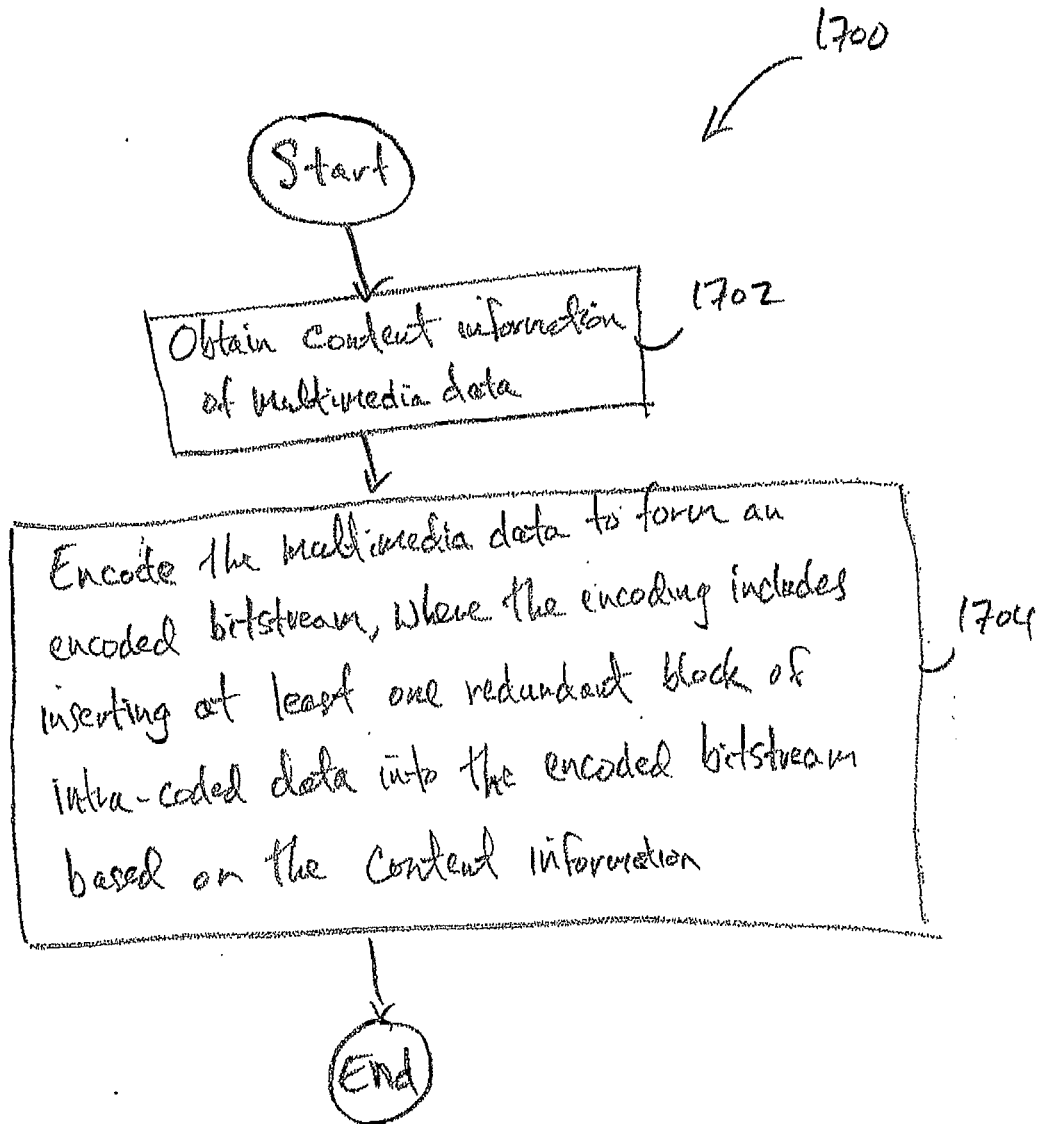 1700
Start
1702
Obtain content information
of multimedia data
Encode the multimedia data to form an
encoded bitstream, where the encoding includes
1704
inserting at least one redundant block of
intra-coded data into the encoded bitstream
based on the content information
End